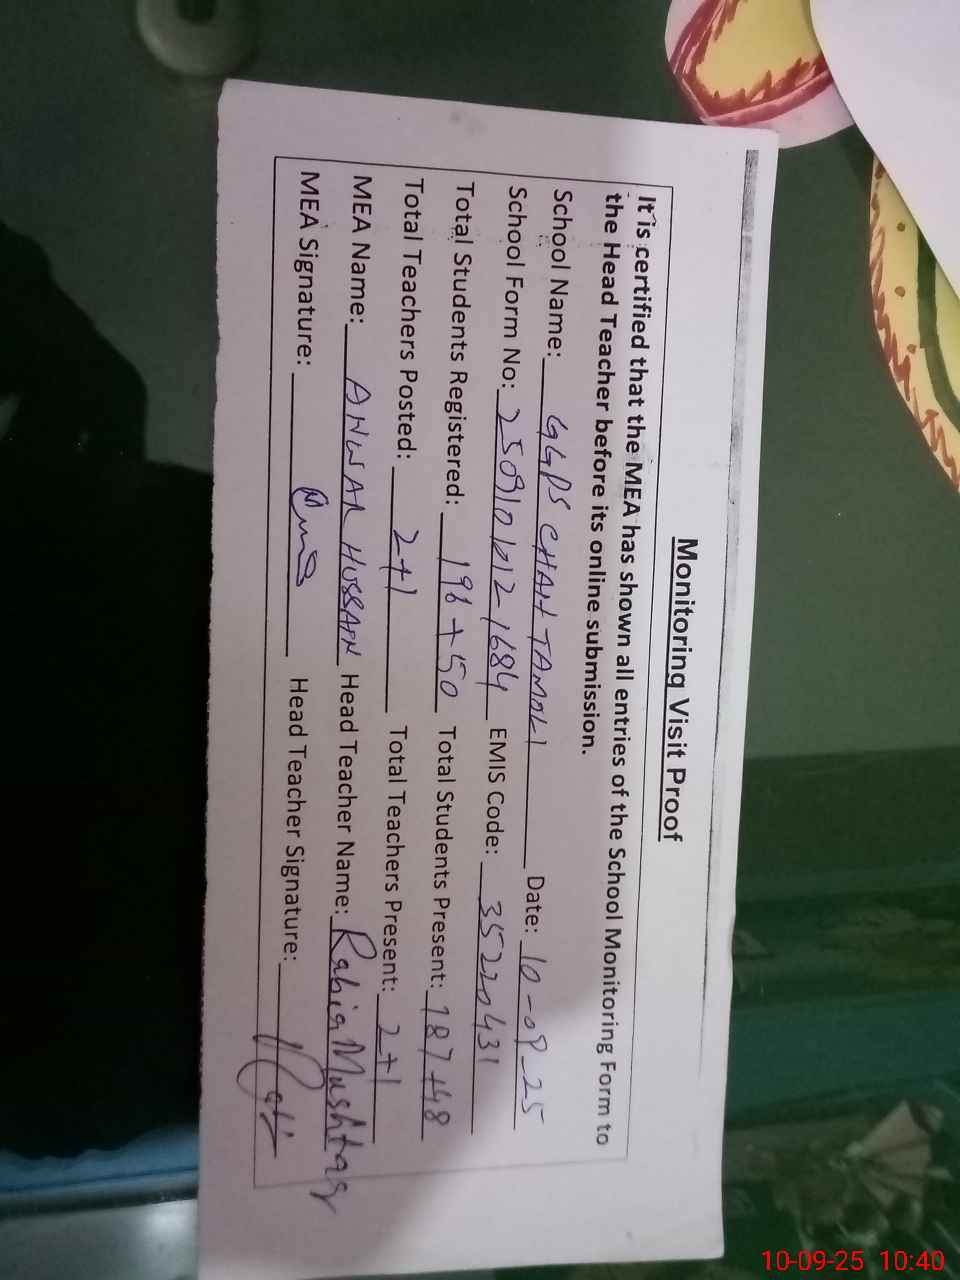 Monitoring Visit Proof
It is certified that the MEA has shown all entries of the School Monitoring Form to
the Head Teacher before its online submission.
School Name: GGPS CHAH TAMOLI Date: 10-09-25
School Form No: 25091012-1684 EMIS Code: 35220431
Total Students Registered: 196+50 Total Students Present: 187+48
Total Teachers Posted: 2+1 Total Teachers Present: 2+1
MEA Name: ANWAR HUSSAIN Head Teacher Name: Rabia Mushtaq
MEA Signature: Head Teacher Signature:
10-09-25 10:40